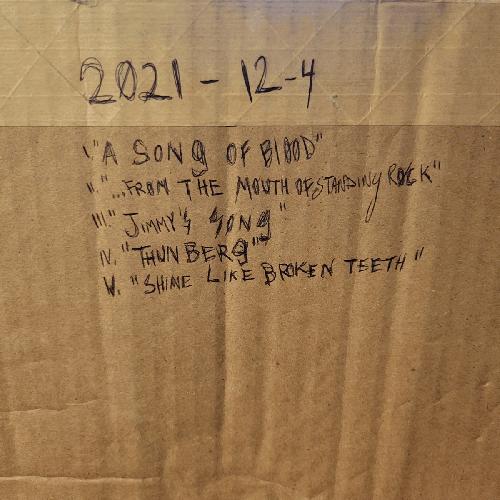 2021-12-4
I. "A SONG OF BLOOD"
II. "...FROM THE MOUTH OF STANDING ROCK"
III. "JIMMY'S SONG"
IV. "THUNBERG"
V. "SHINE LIKE BROKEN TEETH"